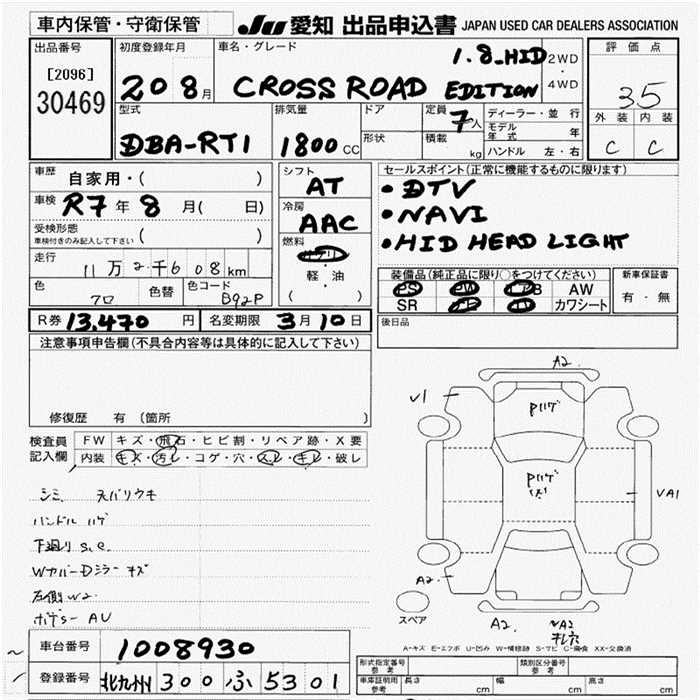 車内保管・守衛保管 JU 愛知 出品申込書 JAPAN USED CAR DEALERS ASSOCIATION
出品番号 [2096] 30469
初度登録年月 20 8月
車名・グレード CROSS ROAD 1.8_HID EDITION
2WD・4WD
評価点 3.5
外装 内装
C C
型式 DBA-RT1
排気量 1800 CC
ドア
形状
定員 7人
積載 kg
ディーラー・並行
モデル年式 年
ハンドル 左・右
車歴 自家用・( )
車検 R7年8月( 日)
受検形態 ( )
車検付きのみ記入して下さい
走行 11万2千608km
色 クロ 色替 色コード B92P
シフト AT
冷房 AAC
燃料 ガソリン
軽・油
( )
セールスポイント(正常に機能するものに限ります)
・DTV
・NAVI
・HID HEAD LIGHT
装備品(純正品に限り○をつけてください)
PS PW エアB AW
SR ナビ TV カワシート
新車保証書
有・無
後日品
R券 13,470円 名変期限 3月10日
注意事項申告欄(不具合内容等は具体的に記入して下さい)
修復歴 有(箇所 )
検査員記入欄
FW キズ・飛石・ヒビ割・リペア跡・X要
内装 キズ・汚レ・コゲ・穴・スレ・キレ・破レ
シミ スバリウモ
ハンドル ハゲ
下廻り S.C.
WカバーDミラー キズ
左側 W2
ボデー AU
A2
V1
Pハゲ
Pハゲ
VA1
A2
スペア
A2
A2
A-キズ E-エクボ U-凹み W-補修跡 S-サビ C-腐食 XX-交換済
車台番号 1008930
登録番号 北九州 300 ふ 5301
形式指定番号 参考
類別区分番号 参考
車庫証明用 参考 長さ cm 幅 cm 高さ cm